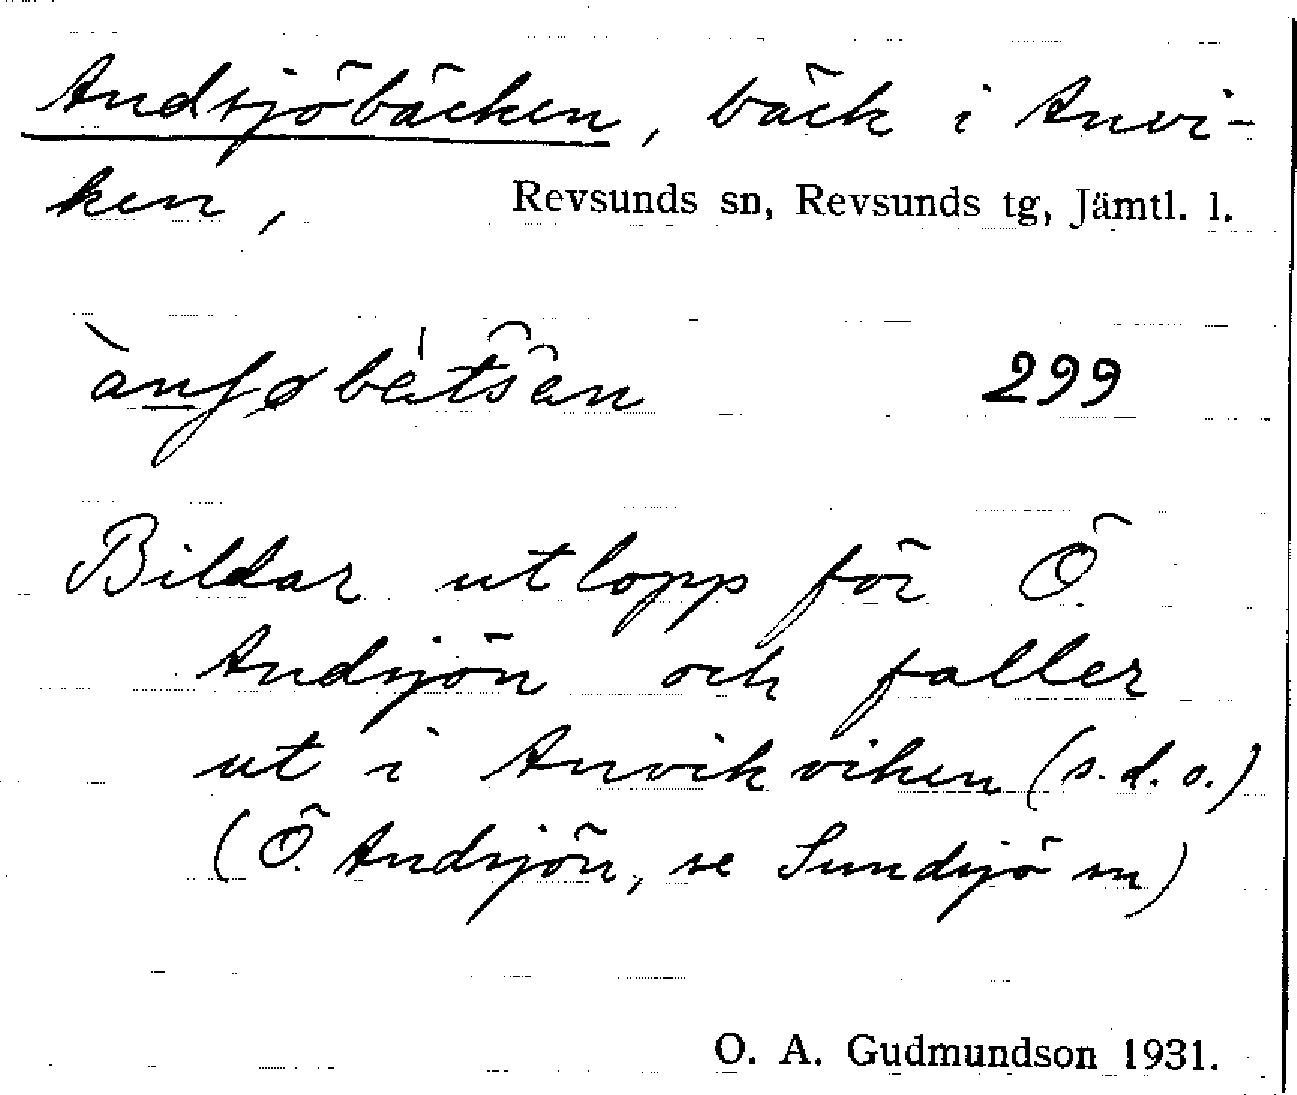 Andsjöbäcken, bäck i Anvi-
ken, Revsunds sn, Revsunds tg, Jämtl. l.
299
Bildar utlopp för Ö.
Andsjön och faller
ut i Anvikviken (s.d.o.)
(Ö. Andsjön, se Sundsjö sn)
O. A. Gudmundson 1931.